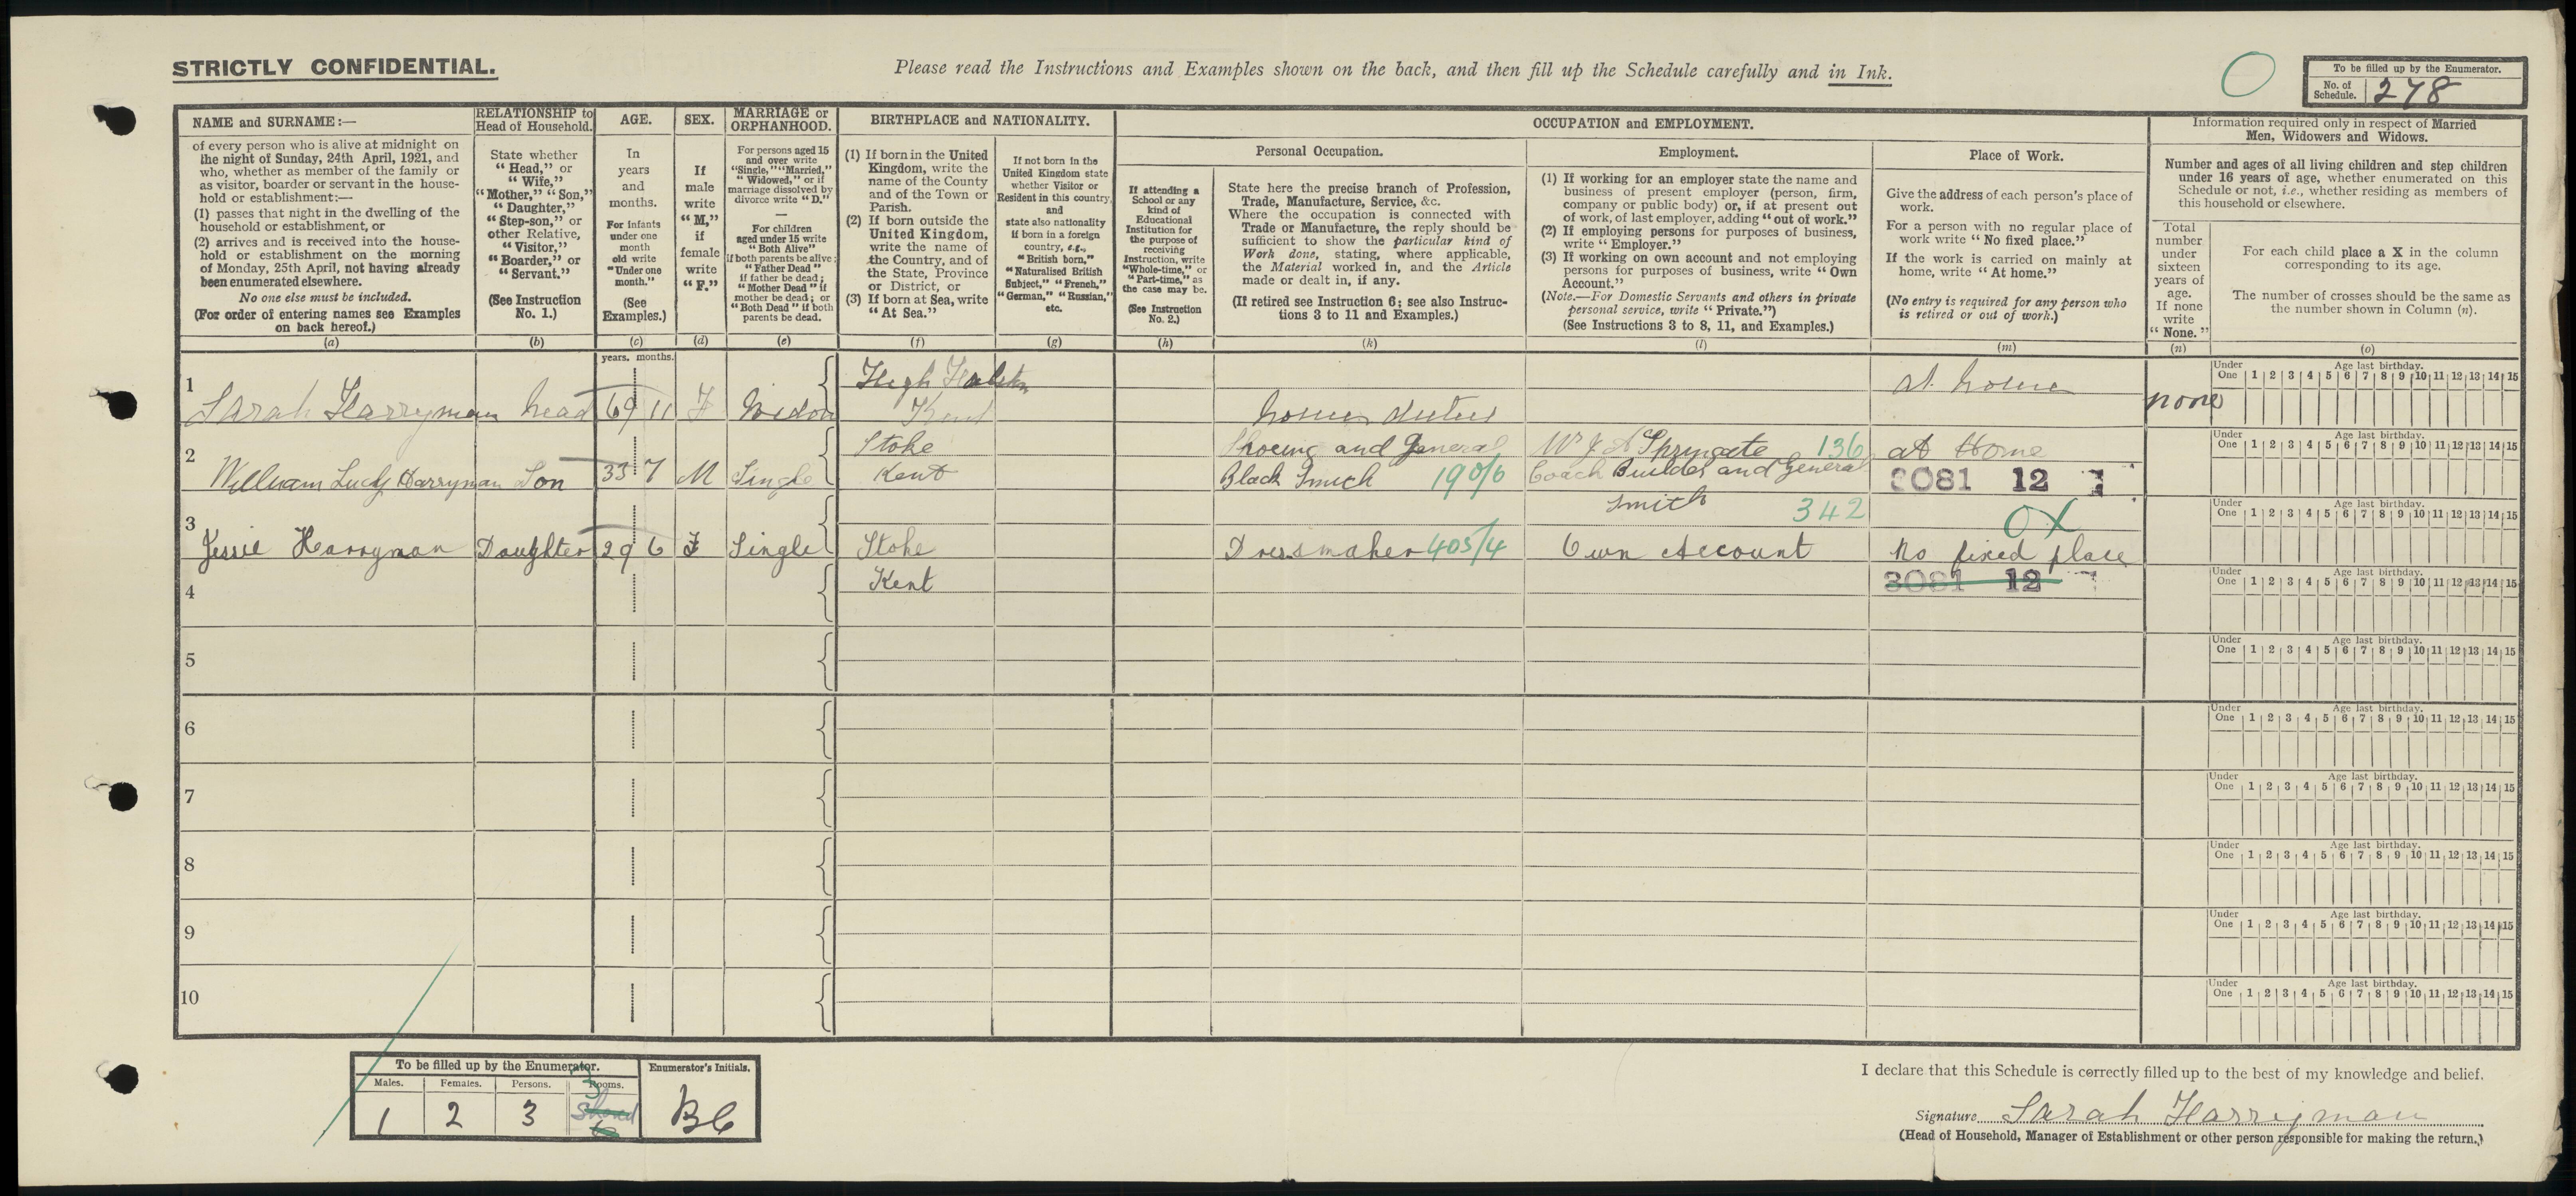 STRICTLY CONFIDENTIAL.
Please read the Instructions and Examples shown on the back, and then fill up the Schedule carefully and in Ink.
To be filled up by the Enumerator.
No. of Schedule. 278
NAME and SURNAME:—
of every person who is alive at midnight on
the night of Sunday, 24th April, 1921, and
who, whether as member of the family or
as visitor, boarder or servant in the house-
hold or establishment:—
(1) passes that night in the dwelling of the
household or establishment, or
(2) arrives and is received into the house-
hold or establishment on the morning
of Monday, 25th April, not having already
been enumerated elsewhere.
No one else must be included.
(For order of entering names see Examples
on back hereof.)
(a)
RELATIONSHIP to
Head of Household.
State whether
"Head," or
"Wife,"
"Mother," "Son,"
"Daughter,"
"Step-son," or
other Relative,
"Visitor,"
"Boarder," or
"Servant."
(See Instruction
No. 1.)
(b)
AGE.
In
years
and
months.
For infants
under one
month
old write
"Under one
month."
(See
Examples.)
(c)
SEX.
If
male
write
"M,"
if
female
write
"F."
(d)
MARRIAGE or
ORPHANHOOD.
For persons aged 15
and over write
"Single," "Married,"
"Widowed," or if
marriage dissolved by
divorce write "D."
—
For children
aged under 15 write
"Both Alive"
if both parents be alive;
"Father Dead"
if father be dead;
"Mother Dead" if
mother be dead; or
"Both Dead" if both
parents be dead.
(e)
BIRTHPLACE and NATIONALITY.
(1) If born in the United
Kingdom, write the
name of the County
and of the Town or
Parish.
(2) If born outside the
United Kingdom,
write the name of
the Country, and of
the State, Province
or District, or
(3) If born at Sea, write
"At Sea."
(f)
If not born in the
United Kingdom state
whether Visitor or
Resident in this country,
and
state also nationality
if born in a foreign
country, e.g.,
"British born,"
"Naturalised British
Subject," "French,"
"German," "Russian,"
etc.
(g)
OCCUPATION and EMPLOYMENT.
If attending a
School or any
kind of
Educational
Institution for
the purpose of
receiving
Instruction, write
"Whole-time," or
"Part-time," as
the case may be.
(See Instruction
No. 2.)
(h)
Personal Occupation.
State here the precise branch of Profession,
Trade, Manufacture, Service, &c.
Where the occupation is connected with
Trade or Manufacture, the reply should be
sufficient to show the particular kind of
Work done, stating, where applicable,
the Material worked in, and the Article
made or dealt in, if any.
(If retired see Instruction 6; see also Instruc-
tions 3 to 11 and Examples.)
(k)
Employment.
(1) If working for an employer state the name and
business of present employer (person, firm,
company or public body) or, if at present out
of work, of last employer, adding "out of work."
(2) If employing persons for purposes of business,
write "Employer."
(3) If working on own account and not employing
persons for purposes of business, write "Own
Account."
(Note.—For Domestic Servants and others in private
personal service, write "Private.")
(See Instructions 3 to 8, 11, and Examples.)
(l)
Place of Work.
Give the address of each person's place of
work.
For a person with no regular place of
work write "No fixed place."
If the work is carried on mainly at
home, write "At home."
(No entry is required for any person who
is retired or out of work.)
(m)
Information required only in respect of Married
Men, Widowers and Widows.
Number and ages of all living children and step children
under 16 years of age, whether enumerated on this
Schedule or not, i.e., whether residing as members of
this household or elsewhere.
Total
number
under
sixteen
years of
age.
If none
write
"None."
(n)
For each child place a X in the column
corresponding to its age.
The number of crosses should be the same as
the number shown in Column (n).
(o)
years. months.
1
Sarah Harryman head 69 11 F Widow High Halstow Kent
home duties
at home
none
Under One Age last birthday. 1 2 3 4 5 6 7 8 9 10 11 12 13 14 15
2
William Lucy Harryman Son 33 7 M Single Stoke Kent
Shoeing and General
Black Smith 190/6
W J A Springate 136
Coach Builder and General
Smith 342
at Home
3081 12
Under One Age last birthday. 1 2 3 4 5 6 7 8 9 10 11 12 13 14 15
3
Jessie Harryman Daughter 29 6 F Single Stoke
Kent
Dressmaker 405/4
Own Account
OX
No fixed place
3081 12
Under One Age last birthday. 1 2 3 4 5 6 7 8 9 10 11 12 13 14 15
4
Under One Age last birthday. 1 2 3 4 5 6 7 8 9 10 11 12 13 14 15
5
Under One Age last birthday. 1 2 3 4 5 6 7 8 9 10 11 12 13 14 15
6
Under One Age last birthday. 1 2 3 4 5 6 7 8 9 10 11 12 13 14 15
7
Under One Age last birthday. 1 2 3 4 5 6 7 8 9 10 11 12 13 14 15
8
Under One Age last birthday. 1 2 3 4 5 6 7 8 9 10 11 12 13 14 15
9
Under One Age last birthday. 1 2 3 4 5 6 7 8 9 10 11 12 13 14 15
10
Under One Age last birthday. 1 2 3 4 5 6 7 8 9 10 11 12 13 14 15
To be filled up by the Enumerator.
Males. Females. Persons. Rooms.
1 2 3 3
Enumerator's Initials.
BC
I declare that this Schedule is correctly filled up to the best of my knowledge and belief.
Signature Sarah Harryman
(Head of Household, Manager of Establishment or other person responsible for making the return.)